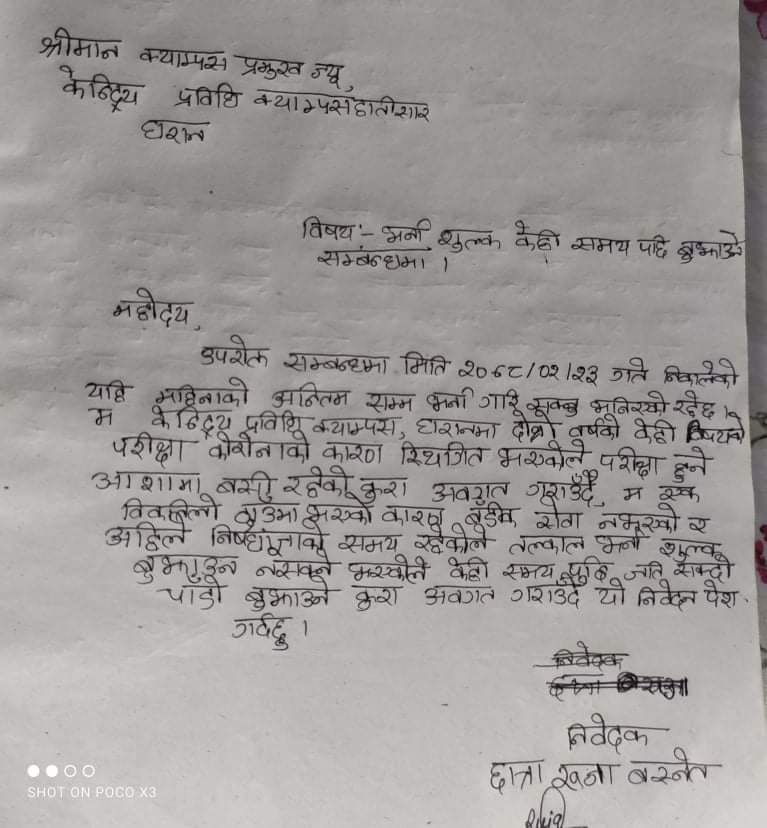 श्रीमान क्याम्पस प्रमुख ज्यू,
केन्द्रिय प्रविधि क्याम्पस हात्तीसार
धरान
विषय:- भर्ना शुल्क केही समय पछि बुझाउने
सम्बन्धमा ।
महोदय,
उपरोक्त सम्बन्धमा मिति २०७८/०२/२३ गते निकालेको
यहि महिनाको अन्तिम सम्म भर्ना गरि सक्नु भनिएको रहेछ ।
म केन्द्रिय प्रविधि क्याम्पस, धरानमा दोश्रो वर्षको केही विषयको
परीक्षा कोरोनाको कारण स्थगित भएकोले परीक्षा हुने
आशामा बसी रहेको कुरा अवगत गराउँदै, म एक
ठाउमा भएको कारण बैंकिक सेवा नभएको र
अहिले निषेधाज्ञाको समय रहेकोले तत्काल भर्ना शुल्क
बुझाउन नसक्ने भएकोले केही समय पछि जति सक्दो
चाडो बुझाउने कुरा अवगत गराउँदै यो निवेदन पेश
गर्दछु ।
निवेदक
निवेदक
छात्रा बस्नेत
SHOT ON POCO X3